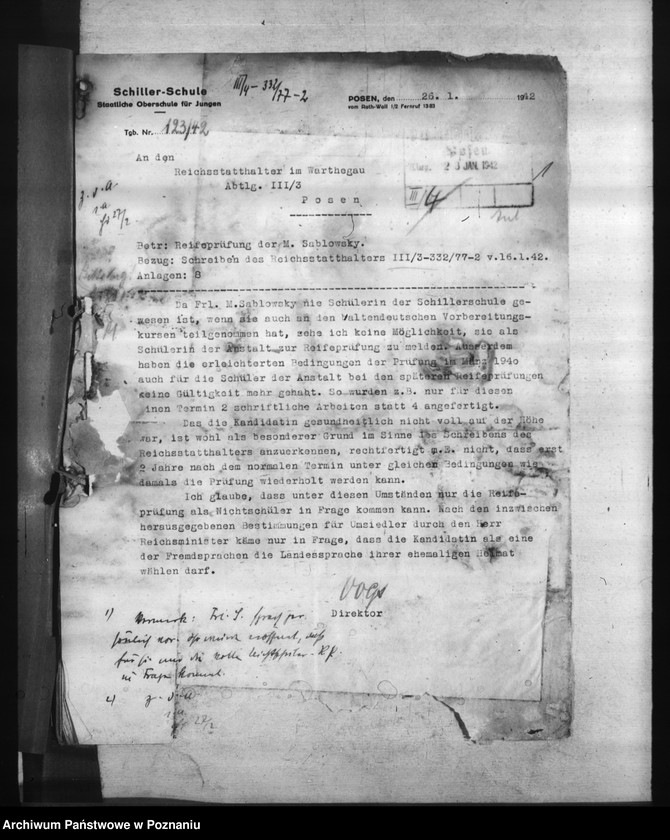 III/4-332/77-2
Schiller-Schule
Staatliche Oberschule für Jungen
POSEN, den 26. 1. 1942
vom Rath-Wall 1/2 Fernruf 1383
Tgb. Nr. 123/42
An den
Reichsstatthalter im Warthegau
Abtlg. III/3
Posen
JAN. 1942
III/4
z. d. A
27/2
Betr: Reifeprüfung der M. Sablowsky.
Bezug: Schreiben des Reichsstatthalters III/3-332/77-2 v.16.1.42.
Anlagen: 8
Da Frl. M.Sablowsky nie Schülerin der Schillerschule ge-
wesen ist, wenn sie auch an den baltendeutschen Vorbereitungs-
kursen teilgenommen hat, sehe ich keine Möglichkeit, sie als
Schülerin der Anstalt zur Reifeprüfung zu melden. Ausserdem
haben die erleichterten Bedingungen der Prüfung im März 1940
auch für die Schüler der Anstalt bei den späteren Reifeprüfungen
keine Gültigkeit mehr gehabt. So wurden z.B. nur für diesen
einen Termin 2 schriftliche Arbeiten statt 4 angefertigt.
Das die Kandidatin gesundheitlich nicht voll auf der Höhe
war, ist wohl als besonderer Grund im Sinne des Schreibens des
Reichsstatthalters anzuerkennen, rechtfertigt m.E. nicht, dass erst
2 Jahre nach dem normalen Termin unter gleichen Bedingungen wie
damals die Prüfung wiederholt werden kann.
Ich glaube, dass unter diesen Umständen nur die Reife-
prüfung als Nichtschüler in Frage kommen kann. Nach den inzwischen
herausgegebenen Bestimmungen für Umsiedler durch den Herr
Reichsminister käme nur in Frage, dass die Kandidatin als eine
der Fremdsprachen die Landessprache ihrer ehemaligen Heimat
wählen darf.
Direktor
1) Vermerk: Frl. S.
in Frage kommt.
2) z. d. A
27/2
Archiwum Państwowe w Poznaniu